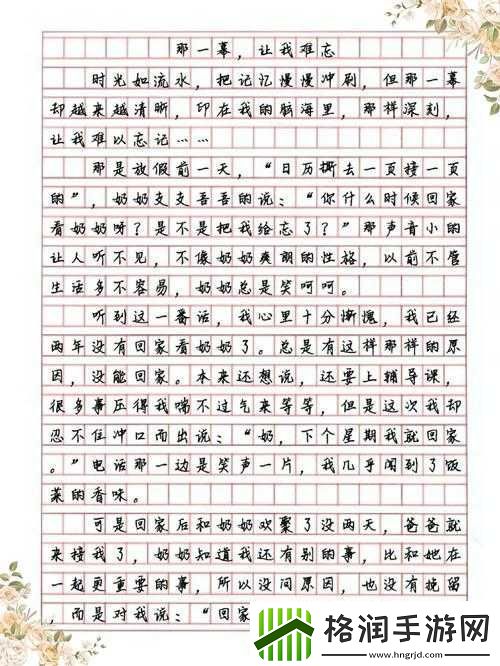 那一幕，让我难忘
时光如流水，把记忆慢慢冲刷，但那一幕
却越来越清晰，印在我的脑海里，那样深刻，
让我难以忘记……
那是放假前一天，“日历撕去一页接一页
的”，奶奶支支吾吾的说：“你什么时候回家
看奶奶呀？是不是把我给忘了？”那声音小的
让人听不见，不像奶奶爽朗的性格，以前不管
生活多不容易，奶奶总是笑呵呵。
听到这一番话，我心里十分惭愧，我已经
两年没有回家看奶奶了。总是有这样那样的原
因，没能回家。本来还想说，还要上辅导课，
很多事压得我喘不过气来等等，但是这次我却
忍不住冲口而出说：“奶，下个星期我就回家
。”电话那一边是笑声一片，我几乎闻到了饭
菜的香味。
可是回家后和奶奶欢聚了没两天，爸爸就
来接我了，奶奶知道我还有别的事，比和她在
一起更重要的事，所以没问原因，也没有挽留
，而是对我说：“回家
格润手游网
www.hngrjd.com